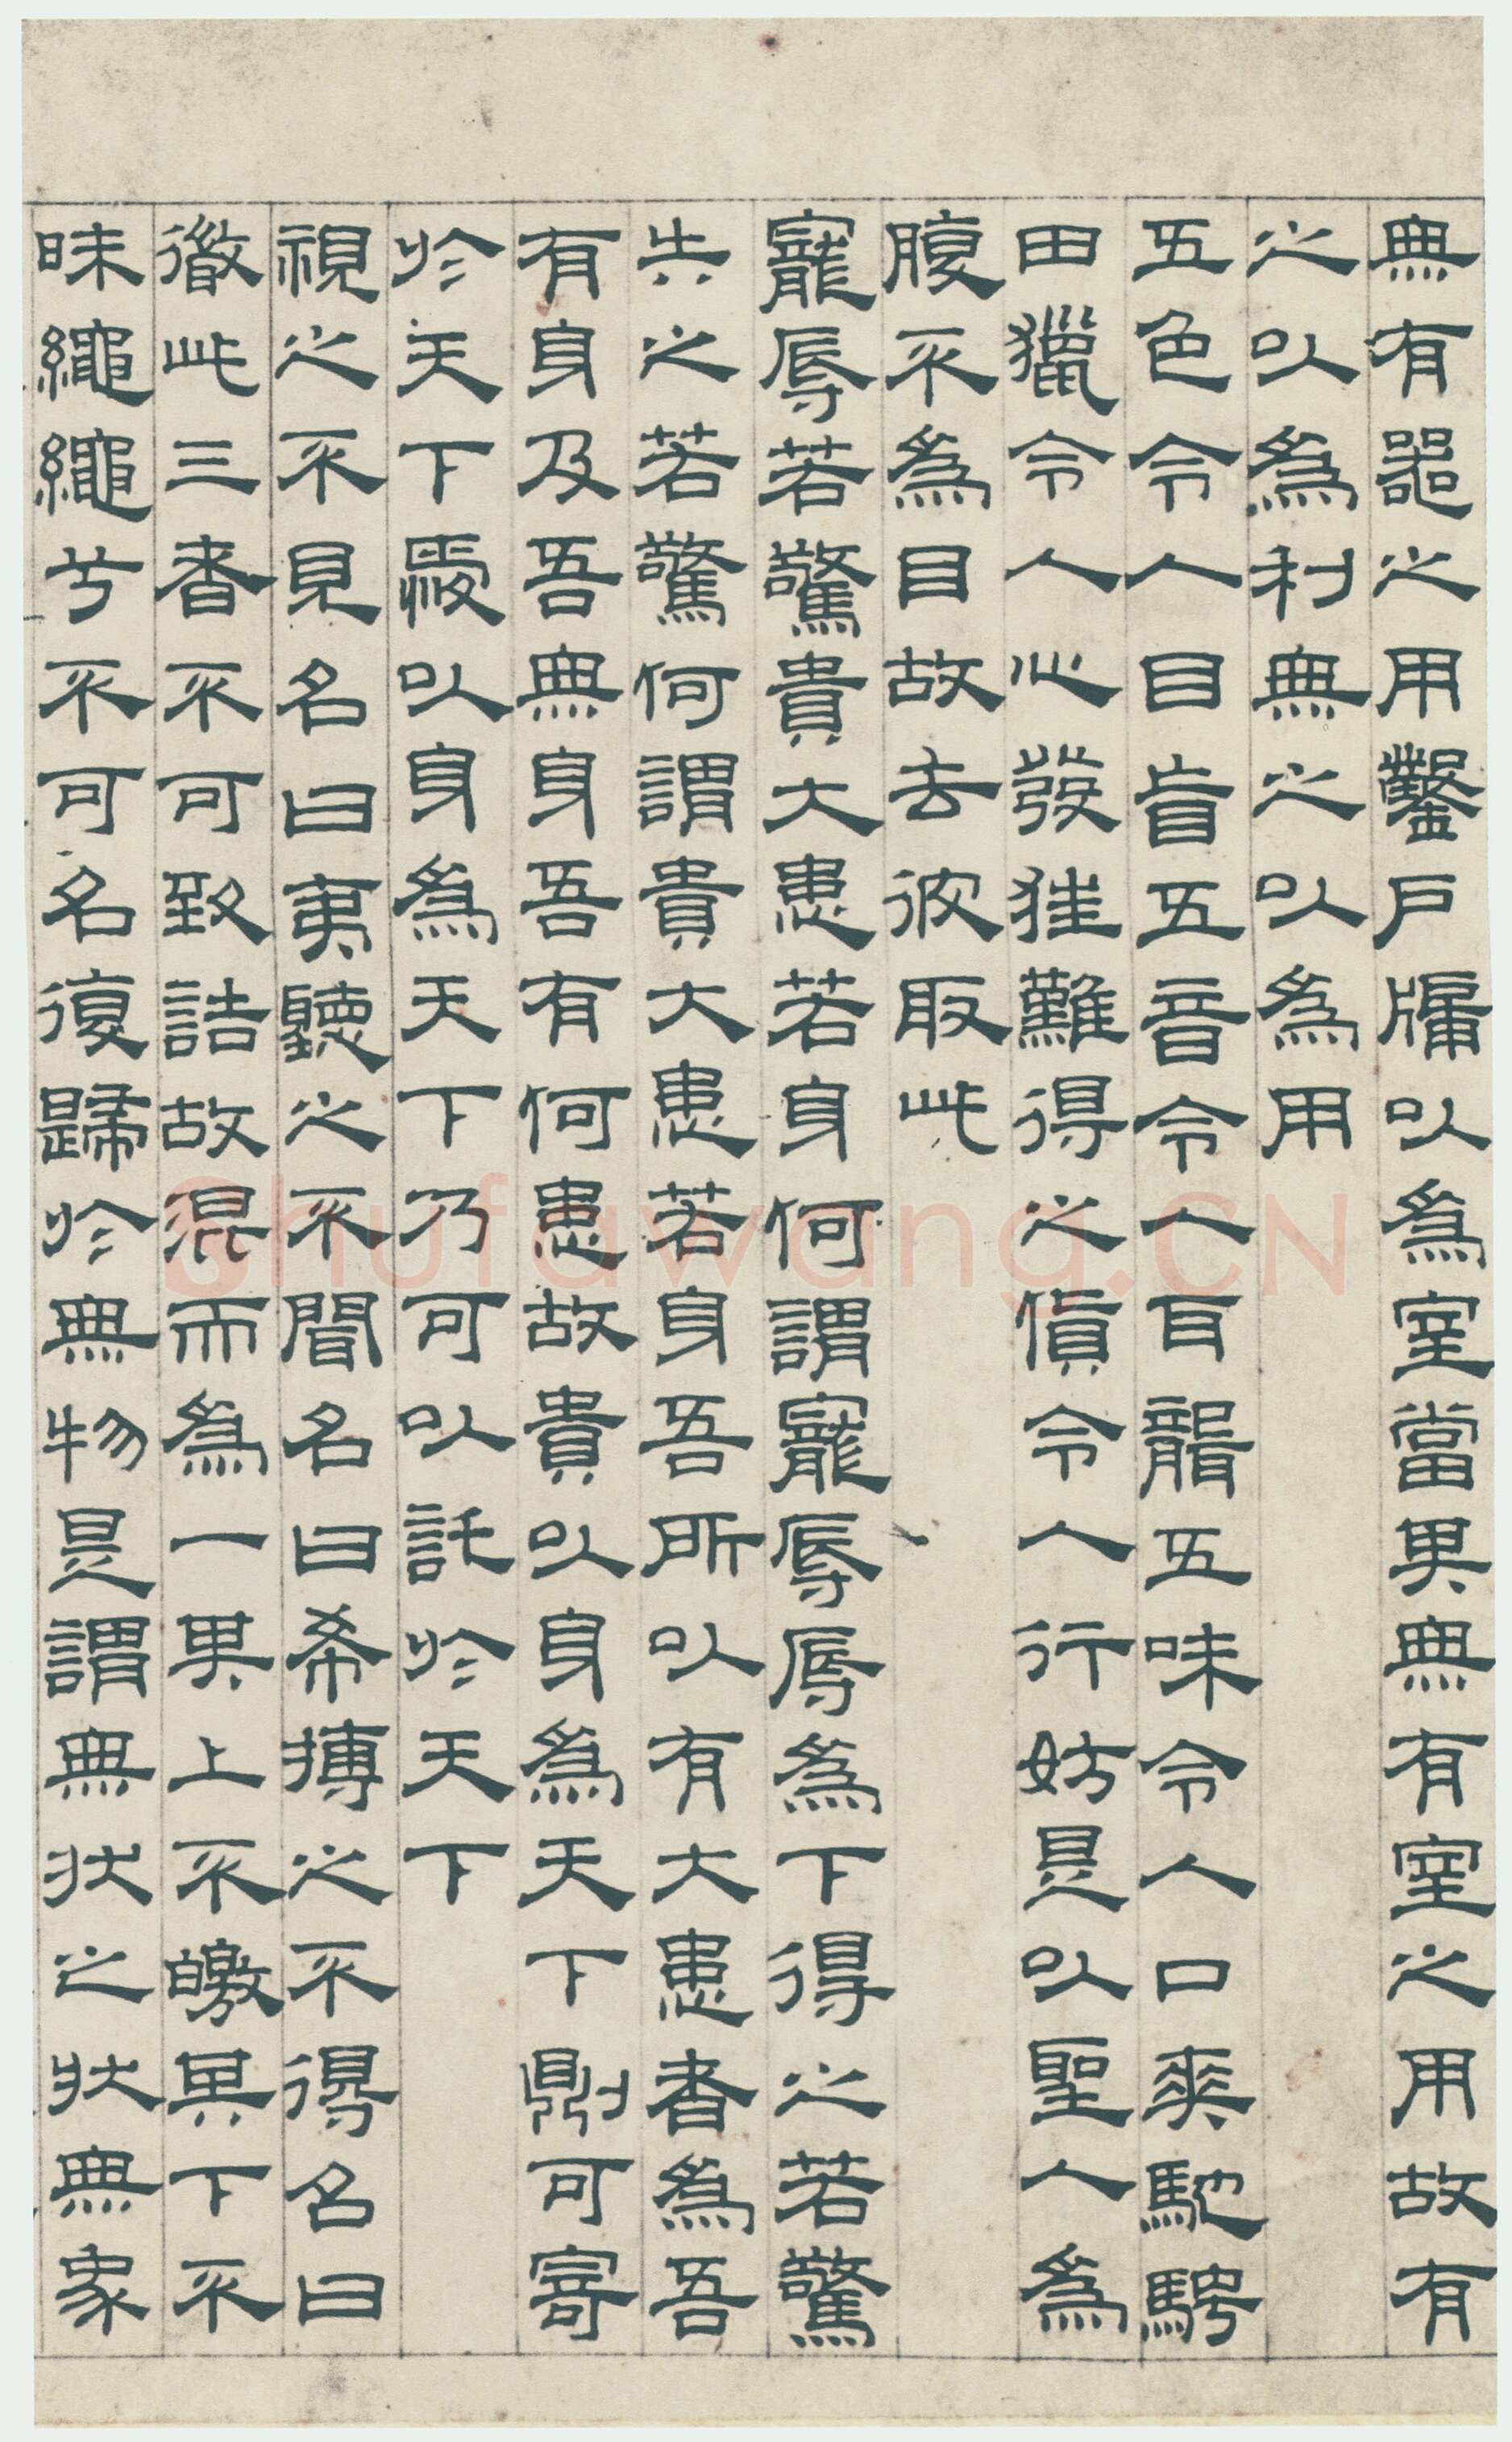 無有器之用鑿戶牖以爲室當其無有室之用故有
之以爲利無之以爲用
五色令人目盲五音令人耳聾五味令人口爽馳騁
田獵令人心發狂難得之貨令人行妨是以聖人爲
腹不爲目故去彼取此
寵辱若驚貴大患若身何謂寵辱辱爲下得之若驚
失之若驚何謂貴大患若身吾所以有大患者爲吾
有身及吾無身吾有何患故貴以身爲天下則可寄
於天下愛以身爲天下乃可以託於天下
視之不見名曰夷聽之不聞名曰希搏之不得名曰
微此三者不可致詰故混而爲一其上不皦其下不
昧繩繩兮不可名復歸於無物是謂無狀之狀無象
Shufawang.CN